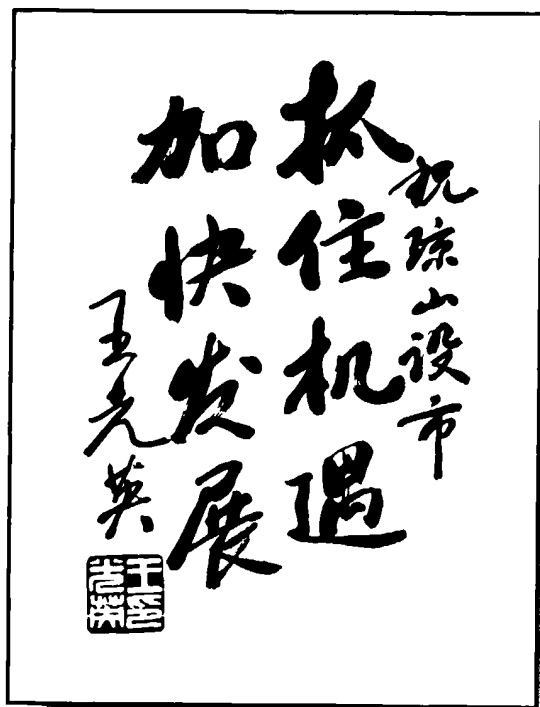 祝琼山设市
抓住机遇
加快发展
王光英
王光英印